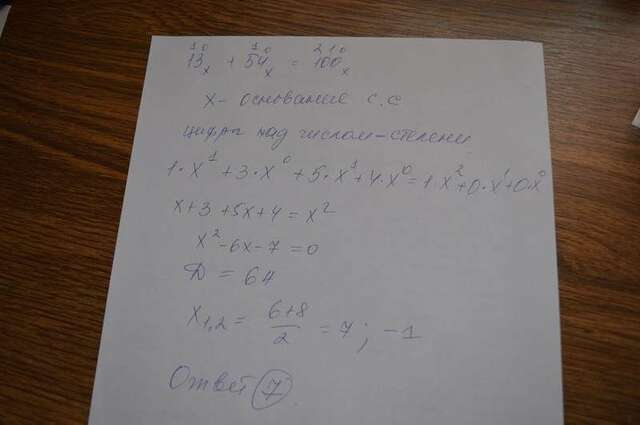 1 0 1 0 2 1 0
13ₓ + 54ₓ = 100ₓ
x - основание с.с
цифры над числом - степени
1·x¹ + 3·x⁰ + 5·x¹ + 4·x⁰ = 1·x² + 0·x¹ + 0·x⁰
x + 3 + 5x + 4 = x²
x² - 6x - 7 = 0
D = 64
x₁,₂ = (6+8)/2 = 7; -1
Ответ 7